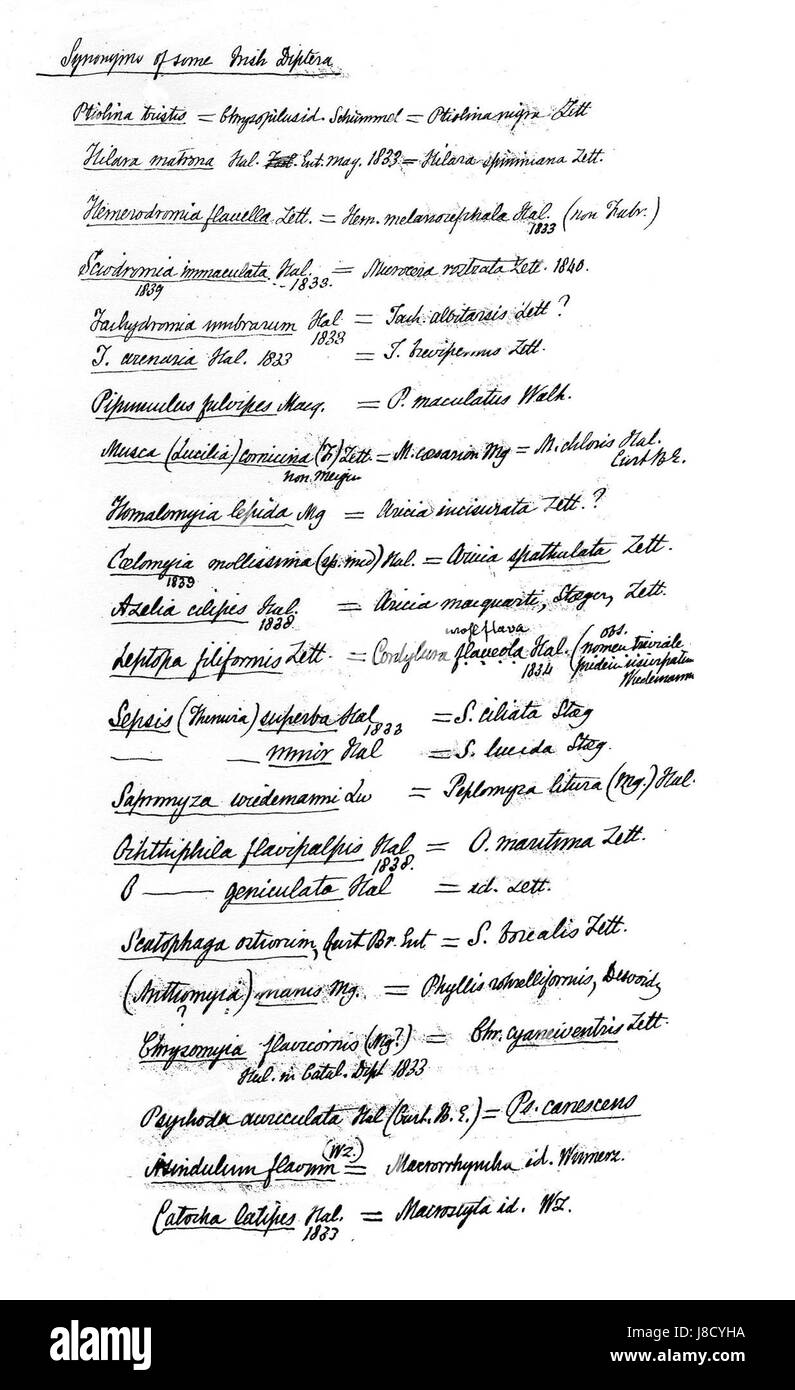 Synonyms of some Irish Diptera
Ptiolina tristis = Chrysopilus id. Schummel = Ptiolina nigra Zett
Hilara matrona Hal. Ent. Mag. 1833 = Hilara Zett.
Hemerodromia flavella Zett. = Hem. melanocephala Hal. (non Fabr.)
1833
Sciodromia immaculata Hal. = Microcera rostrata Zett. 1840.
1839 -1833.
Tachydromia umbrarum Hal = Tach. albitarsis Zett?
1833
T. arenaria Hal. 1833 = T. brevipennis Zett.
Pipunculus fulvipes Macq. = P. maculatus Walk.
Musca (Lucilia) cornicina (F.) Zett. = M. cæsarion Mg = M. chloris Hal.
non Meigen Curt B.E.
Homalomyia lepida Mg = Aricia incisurata Zett.?
Cœlomyia mollissima (sp. med) Hal. = Aricia spathulata Zett.
1839
Azelia cilipes Hal. = Aricia macquarti, Stæger, Zett.
1838
flava
Leptopa filiformis Zett. = Cordylura flaveola Hal. (obs.
1834 nomen triviale
usurpatum
Wiedemann
Sepsis (Themira) superba Hal = S. ciliata Stæg
1833
— — minor Hal = S. lucida Stæg.
Sapromyza wiedemanni Lw = Peplomyza litura (Mg.) Hal.
Ochthiphila flavipalpis Hal = O. maritima Zett.
1838.
O —— geniculata Hal = id. Zett.
Scatophaga ostiorum, Curt Br. Ent = S. borealis Zett.
(Anthomyia) manis Mg. = Phyllis Desvoid,
?
Chrysomyia flavicornis (Mg?) = Chr. cyaneiventris Zett.
Hal. in Catal. Dipt 1833
Psychoda auriculata Hal (Curt. B. E.) = Ps. canescens
(Wz.)
Asindulum flavum = Macrorrhyncha id. Winnerz.
Catocha latipes Hal. = Macrostyla id. Wz.
1833
a alamy stock photo
alamy
Image ID: J8CYHA
www.alamy.com